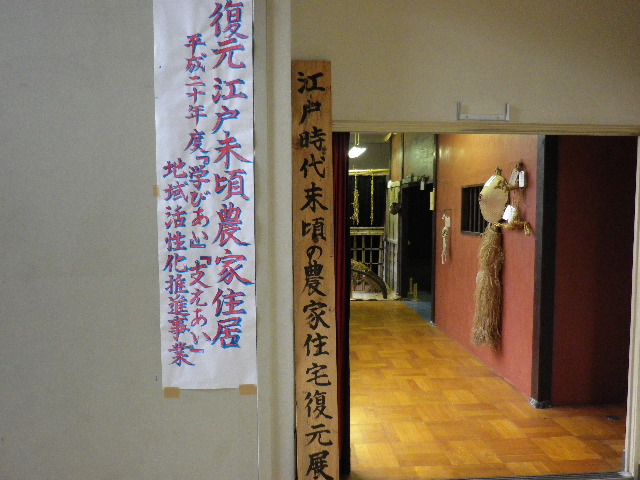 復元 江戸末頃農家住居
平成二十年度「学びあい」「支えあい」
地域活性化推進事業
江戸時代末頃の農家住宅復元展